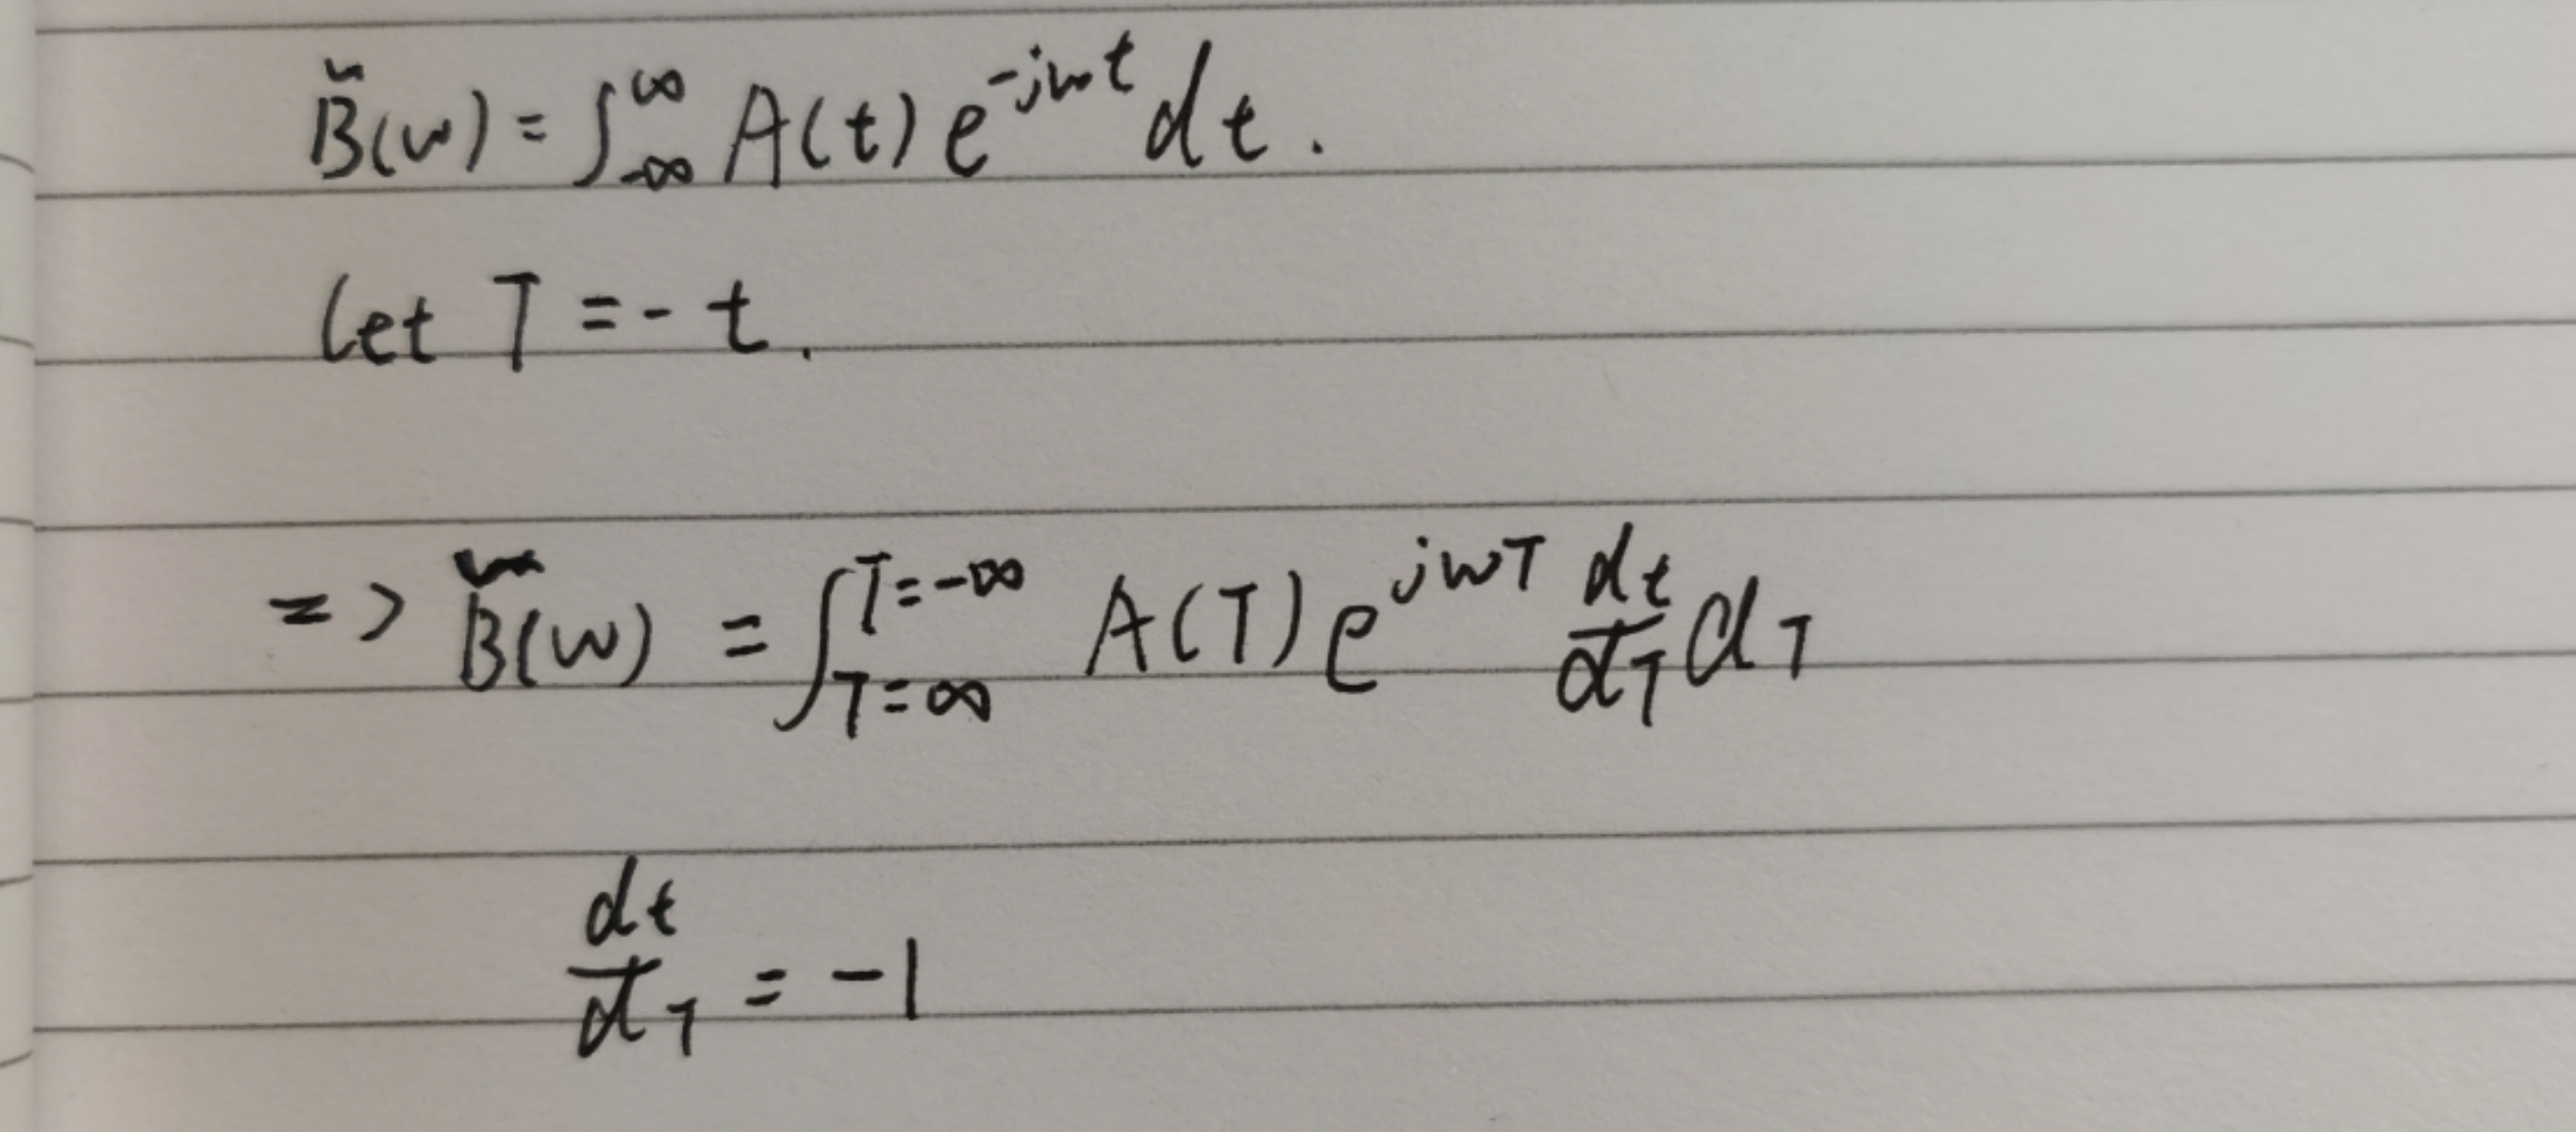 B̃(w) = ∫_{-∞}^{∞} A(t) e^{-jwt} dt.
let T = - t.
=> B̃(w) = ∫_{T=∞}^{T=-∞} A(T) e^{jwT} \frac{dt}{dT} dT
\frac{dt}{dT} = -1